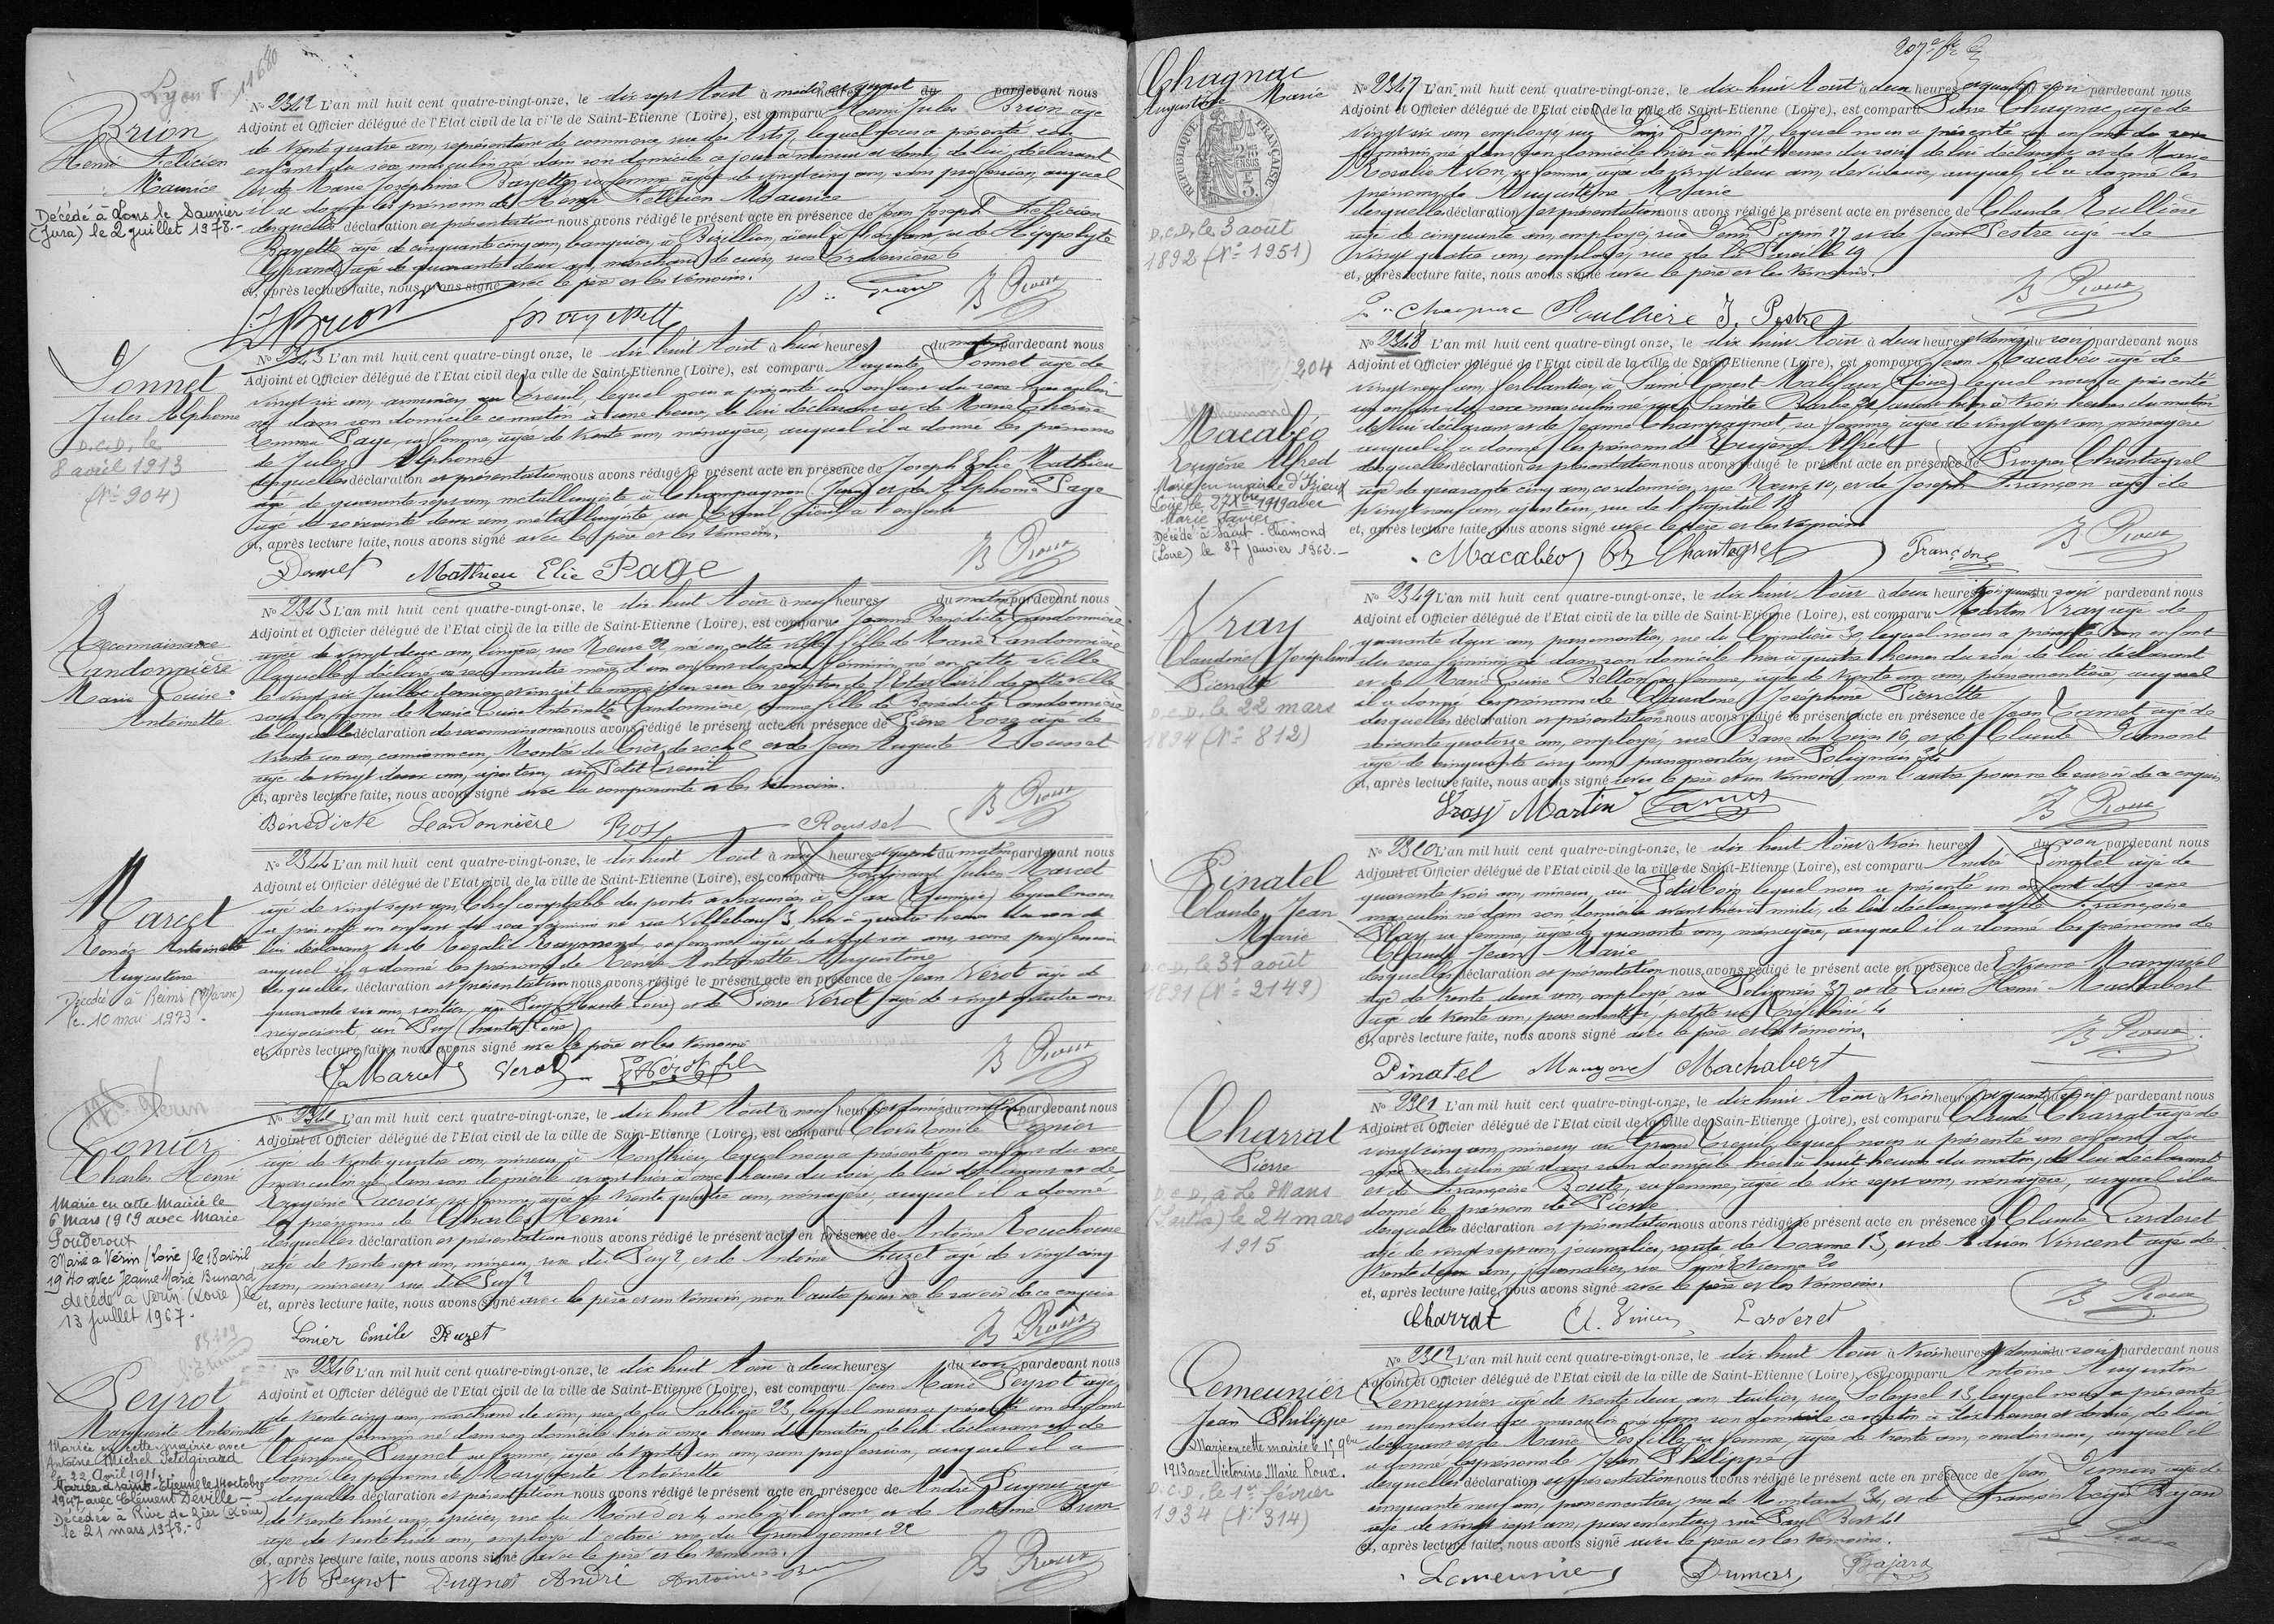 Lyon 11680
Brion
Henri Félicien
Maurice
Décédé à Lons le Saunier
(Jura) le 2 juillet 1978.-
No 2342 L'an mil huit cent quatre-vingt-onze, le dix sept Août à midi et quart du pardevant nous
Adjoint et Officier délégué de l'Etat civil de la ville de Saint-Etienne (Loire), est comparu Henri Jules Brion âgé
de trente quatre ans, représentant de commerce, rue des Arts, lequel nous a présenté un
enfant du sexe masculin né dans son domicile ce jour à minuit et demi, de lui déclarant
et de Marie Joséphine Bayette, sa femme, âgée de vingt cinq ans, sans profession, auquel
il a donné les prénoms de Henri Félicien Maurice
desquelles déclaration et présentation nous avons rédigé le présent acte en présence de Jean Joseph Félicien
Bayette âgé de cinquante cinq ans, banquier, à aïeul de l'enfant et de Hippolyte
Grand, âgé de quarante deux ans, marchand de cuirs, rue Traversière 6
et, après lecture faite, nous avons signé avec le père et les témoins.
Brion Bayette Grand B Roux
Donnet
Jules Alphonse
D.C.D, le
8 avril 1913
(No 904)
No 2343 L'an mil huit cent quatre-vingt onze, le dix huit Août à huit heures du matin pardevant nous
Adjoint et Officier délégué de l'Etat civil de la ville de Saint-Etienne (Loire), est comparu Auguste Donnet âgé de
vingt six ans, armurier, au Creuil, lequel nous a présenté un enfant du sexe masculin
né dans son domicile ce matin à une heure, de lui déclarant et de Marie Thérèse
Emma Page, sa femme, âgée de trente ans, ménagère, auquel il a donné les prénoms
de Jules Alphonse
desquelles déclaration et présentation nous avons rédigé le présent acte en présence de Joseph Elie Mathieu
âgé de quarante sept ans, métallurgiste à Champagnole (Jura) et de Alphonse Page
âgé de soixante deux ans, métallurgiste au Creuil, aïeul de l'enfant
et, après lecture faite, nous avons signé avec le père et les témoins.
Donnet Mathieu Elie Page B Roux
Reconnaissance
Landonnière
Marie Louise
Antoinette
No 2343 L'an mil huit cent quatre-vingt-onze, le dix huit Août à neuf heures du matin pardevant nous
Adjoint et Officier délégué de l'Etat civil de la ville de Saint-Etienne (Loire), est comparu Jeanne Bénédicte Landonnière
âgée de vingt deux ans, lingère, rue Neuve 22, née en cette ville, fille de Marie Landonnière
laquelle a déclaré se reconnaître mère d'un enfant du sexe féminin né en cette ville
le vingt six Juillet dernier et inscrit le même jour sur les registres de l'Etat Civil de cette ville
sous les noms de Marie Louise Antoinette Landonnière, comme fille de Bénédicte Landonnière
de laquelle déclaration de reconnaissance nous avons rédigé le présent acte en présence de Pierre Ross âgé de
trente un ans, camionneur, Montée du Crêt de roch et de Jean Auguste Rousset
âgé de vingt deux ans, ajusteur, au Petit Creuil
et, après lecture faite, nous avons signé avec la comparante et les témoins.
Bénédicte Landonnière Ross Rousset B Roux
Marcet
Renée Antoinette
Augustine
Décédée à Reims (Marne)
le 10 mai 1973.
No 2344 L'an mil huit cent quatre-vingt-onze, le dix huit Août à neuf heures et quart du matin pardevant nous
Adjoint et Officier délégué de l'Etat civil de la ville de Saint-Etienne (Loire), est comparu Ferdinand Julien Marcet
âgé de vingt sept ans, Chef comptable des ponts et chaussées à Sfax (Tunisie) lequel nous
a présenté un enfant du sexe féminin né rue Villeboeuf 3, hier à quatre heures du soir de
lui déclarant et de Rosalie Raymond, sa femme, âgée de vingt six ans, sans profession
auquel il a donné les prénoms de Renée Antoinette Augustine
desquelles déclaration et présentation nous avons rédigé le présent acte en présence de Jean Vérot âgé de
quarante six ans, rentier, au Puy (Haute Loire) et de Pierre Vérot âgé de vingt quatre ans
négociant, au Puy (Haute Loire)
et, après lecture faite, nous avons signé avec le père et les témoins
Marcet Verot P Vérot fils B Roux
Verin
Lonier
Charles Henri
Marié en cette Mairie le
6 Mars 1919 avec Marie
Pouderoux
Marié à Vérin (Loire) le 18 avril
1940 avec Jeanne Marie Bunard,
décédé à Verin (Loire) le
13 juillet 1967.
No 2345 L'an mil huit cent quatre-vingt-onze, le dix huit Août à neuf heures et demie du matin pardevant nous
Adjoint et Officier délégué de l'Etat civil de la ville de Sain-Etienne (Loire), est comparu Clovis Emile Lonier
âgé de trente quatre ans, mineur, à Monthieu, lequel nous a présenté un enfant du sexe
masculin né dans son domicile avant hier à onze heures du soir, de lui déclarant et de
Eugénie Lacroix, sa femme, âgée de trente quatre ans, ménagère, auquel il a donné
les prénoms de Charles Henri
desquelles déclaration et présentation nous avons rédigé le présent acte en présence de Antoine Rouchouse
âgé de trente sept ans, mineur, rue du Puy 2, et de Antoine Fuzet âgé de vingt cinq
ans, mineur, rue du Puy 2
et, après lecture faite, nous avons signé avec le père et un témoin, non l'autre pour ne le savoir de ce enquis
Lonier Emile Fuzet B Roux
Peyrot
Marguerite Antoinette
Mariée en cette mairie avec
Antoine Michel Petitgirard
le 22 Avril 1911.
Mariée à Saint-Etienne le 14 octobre
1947 avec Clément Deville.
Décédée à Rive de Gier (Loire)
le 21 mars 1978.-
No 2346 L'an mil huit cent quatre-vingt-onze, le dix huit Août à deux heures du soir pardevant nous
Adjoint et Officier délégué de l'Etat civil de la ville de Saint-Etienne (Loire), est comparu Jean Marie Peyrot âgé
de trente cinq ans, marchand de vins, rue de la Sablière 23, lequel nous a présenté un enfant
du sexe féminin né dans son domicile hier à onze heures du matin de lui déclarant et de
Clémence Pugnet sa femme, âgée de trente un ans, sans profession, auquel il a
donné les prénoms de Marguerite Antoinette
desquelles déclaration et présentation nous avons rédigé le présent acte en présence de André Pugnet âgé
de trente huit ans, épicier, rue du Mont d'or 4, oncle de l'enfant, et de Antoine Brun
âgé de trente trois ans, employé d'octroi, rue du Grand gonnet 22
et, après lecture faite, nous avons signé avec le père et les témoins.
J M Peyrot Pugnet André Antoine Brun B Roux
207e
Chagnac
Augustine Marie
RÉPUBLIQUE FRANÇAISE
D.C.D, le 3 août
1892 (No 1951)
No 2347 L'an mil huit cent quatre-vingt-onze, le dix huit Août à deux heures et quart du soir pardevant nous
Adjoint et Officier délégué de l'Etat civil de la ville de Saint-Etienne (Loire), est comparu Pierre Chagnac, âgé de
vingt six ans, employé, rue Denis Papin 27, lequel nous a présenté un enfant du sexe
féminin né dans son domicile hier à huit heures du soir de lui déclarant et de Marie
Rosalie Avon, sa femme, âgée de vingt deux ans, dévideuse, auquel il a donné les
prénoms de Augustine Marie
desquelles déclaration et présentation nous avons rédigé le présent acte en présence de Claude Rullière
âgé de cinquante ans, employé, rue Denis Papin 27 et de Jean Pestre âgé de
vingt quatre ans, employé, rue de la Pareille 19
et, après lecture faite, nous avons signé avec le père et les témoins.
P. Chagnac Roullière J. Pestre B Roux
204
St Chamond
Macabéo
Eugène Alfred
Marié en mairie d'Izieux
Loire, le 27 Xbre 1919 avec
Marie Favier
Décédé à Saint-Chamond
(Loire) le 27 janvier 1962.-
No 2348 L'an mil huit cent quatre-vingt onze, le dix huit Août à deux heures et demie du soir pardevant nous
Adjoint et Officier délégué de l'Etat civil de la ville de Saint-Etienne (Loire), est comparu Jean Macabéo âgé de
vingt neuf ans, ferblantier, à Saint Genest Malifaux (Loire) lequel nous a présenté
un enfant du sexe masculin né rue Sainte Barbe 21, avant hier à trois heures du matin
de lui déclarant et de Jeanne Champagnat, sa femme, âgée de vingt sept ans, ménagère
auquel il a donné les prénoms de Eugène Alfred
desquelles déclaration et présentation nous avons rédigé le présent acte en présence de Prosper Chantagrel
âgé de quarante cinq ans, cordonnier, rue Neuve 10, et de Joseph Françon âgé de
vingt neuf ans, ajusteur, rue de l'hôpital 18
et, après lecture faite, nous avons signé avec le père et les témoins
Macabéo Chantagrel Françon B Roux
Vray
Claudine Joséphine
Pierrette
D.C.D, le 22 mars
1894 (No 812)
No 2349 L'an mil huit cent quatre-vingt-onze, le dix huit Août à deux heures trois quarts du soir pardevant nous
Adjoint et Officier délégué de l'Etat civil de la ville de Saint-Etienne (Loire), est comparu Martin Vray âgé de
quarante deux ans, passementier, rue du Grindière 30, lequel nous a présenté un enfant
du sexe féminin né dans son domicile hier à quatre heures du soir de lui déclarant
et de Marie Louise Bellon sa femme, âgée de trente ans, passementière, auquel
il a donné les prénoms de Claudine Joséphine Pierrette
desquelles déclaration et présentation nous avons rédigé le présent acte en présence de Jean Carret âgé de
soixante quatorze ans, employé, rue Basse des Rives 16, et de Claude Dumont
âgé de cinquante cinq ans, passementier, rue Polignais 34
et, après lecture faite, nous avons signé avec le père et un témoin, non l'autre pour ne le savoir de ce enquis
Vray Martin Carret B Roux
Pinatel
Claude Jean
Marie
D.C.D, le 31 août
1891 (No 2149)
No 2350 L'an mil huit cent quatre-vingt-onze, le dix huit Août à trois heures du soir pardevant nous
Adjoint et Officier délégué de l'Etat civil de la ville de Saint-Etienne (Loire), est comparu André Pinatel âgé de
quarante trois ans, mineur, au Soleil, lequel nous a présenté un enfant du sexe
masculin né dans son domicile avant hier à midi, de lui déclarant et de Françoise
Play sa femme, âgée de quarante ans, ménagère, auquel il a donné les prénoms de
Claude Jean Marie
desquelles déclaration et présentation nous avons rédigé le présent acte en présence de Etienne Mangavel
âgé de trente deux ans, employé rue Polignais 37 et de Louis Henri Machabert
âgé de trente ans, passementier, petite rue Trefilerie 4
et, après lecture faite, nous avons signé avec le père et les témoins.
Pinatel Mangavel Machabert B Roux
Charrat
Pierre
D.C.D, à Le Mans
(Sarthe) le 24 mars
1915
No 2351 L'an mil huit cent quatre-vingt-onze, le dix huit Août à trois heures et quart du soir pardevant nous
Adjoint et Officier délégué de l'Etat civil de la ville de Sain-Etienne (Loire), est comparu Claude Charrat âgé de
vingt cinq ans, mineur, au Grand Creuil, lequel nous a présenté un enfant du
sexe masculin né dans son domicile hier à huit heures du matin, de lui déclarant
et de Françoise Boute, sa femme, âgée de dix sept ans, ménagère, auquel il a
donné le prénom de Pierre
desquelles déclaration et présentation nous avons rédigé le présent acte en présence de Claude Larderet
âgé de vingt sept ans, journalier, route de Roanne 13, et de Adrien Vincent âgé de
trente deux ans, journalier, rue Saint Etienne 20
et, après lecture faite, nous avons signé avec le père et les témoins.
Charrat A. Vincent Larderet B Roux
Lemeunier
Jean Philippe
Marié en cette mairie le 15 9bre
1913 avec Victorine Marie Roux.
D.C.D, le 1er février
1934 (No 314)
No 2352 L'an mil huit cent quatre-vingt-onze, le dix huit Août à trois heures et demie du soir pardevant nous
Adjoint et Officier délégué de l'Etat civil de la ville de Saint-Etienne (Loire), est comparu Antoine Augustin
Lemeunier âgé de trente deux ans, tuilier, rue Soleysel 13, lequel nous a présenté
un enfant du sexe masculin né dans son domicile ce matin à dix heures et demie, de lui
déclarant et de Marie Desfilles sa femme, âgée de trente ans, ourdisseuse, auquel il
a donné les prénoms de Jean Philippe
desquelles déclaration et présentation nous avons rédigé le présent acte en présence de Jean Dumas âgé de
cinquante neuf ans, passementier, rue de Montaud 34, et de François Régis Bajard
âgé de vingt sept ans, passementier, rue Paul Bert 41
et, après lecture faite, nous avons signé avec le père et les témoins.
Lemeunier Dumas Bajard B Roux